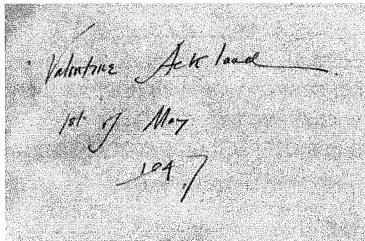 Valentine Ackland
1st of May
1947